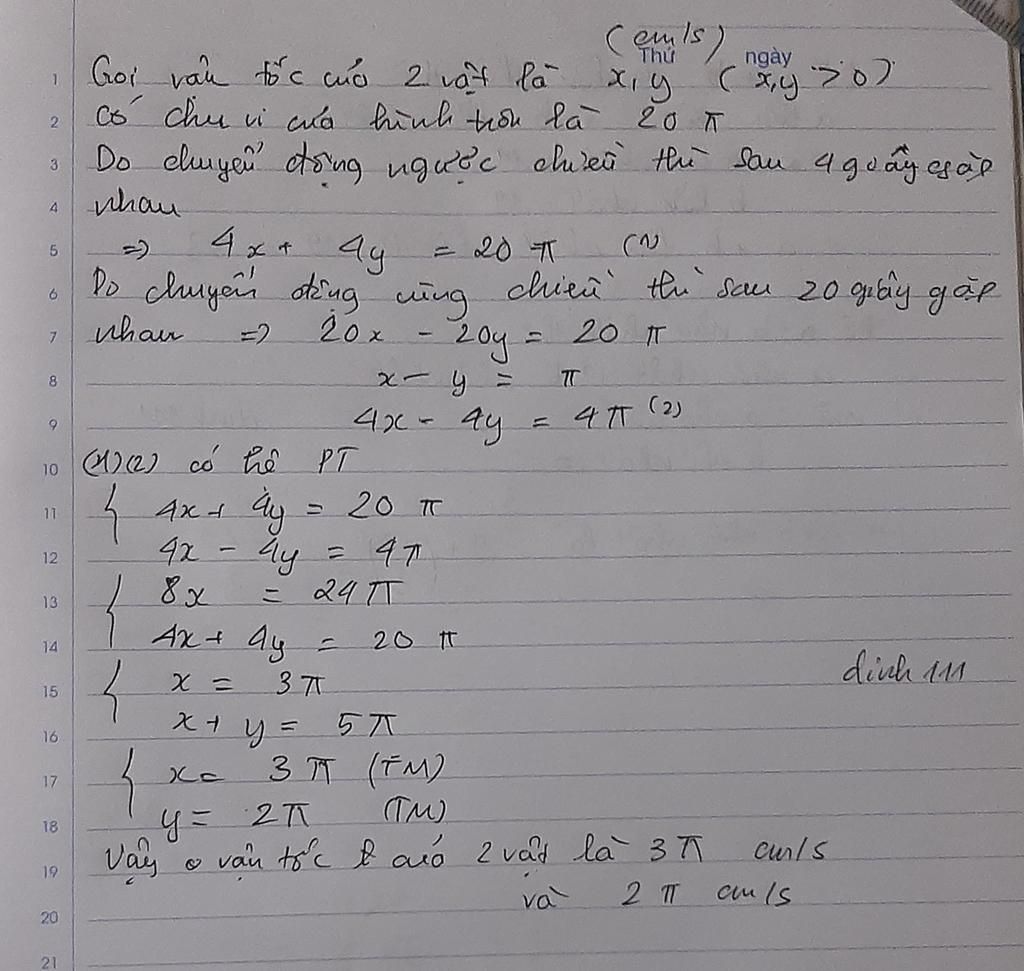 (cm/s)
Thứ ngày
1 Gọi vân tốc cuả 2 vật là x, y ( x,y > 0)
2 có chu vi cuả hình tròn là 20 π
3 Do chuyển động ngược chiều thì sau 4 giây gặp
4 nhau
5 => 4x + 4y = 20 π (1)
6 Do chuyển động cùng chiều thì sau 20 giây gặp
7 nhau => 20x - 20y = 20 π
8 x - y = π
9 4x - 4y = 4π (2)
10 (1)(2) có hệ PT
11 { 4x + 4y = 20 π
12 4x - 4y = 4π
13 { 8x = 24π
14 4x + 4y = 20 π
15 { x = 3π
dinh 111
16 x + y = 5π
17 { x = 3π (TM)
18 y = 2π (TM)
19 Vậy vận tốc cuả 2 vật là 3π cm/s
20 và 2 π cm/s
21